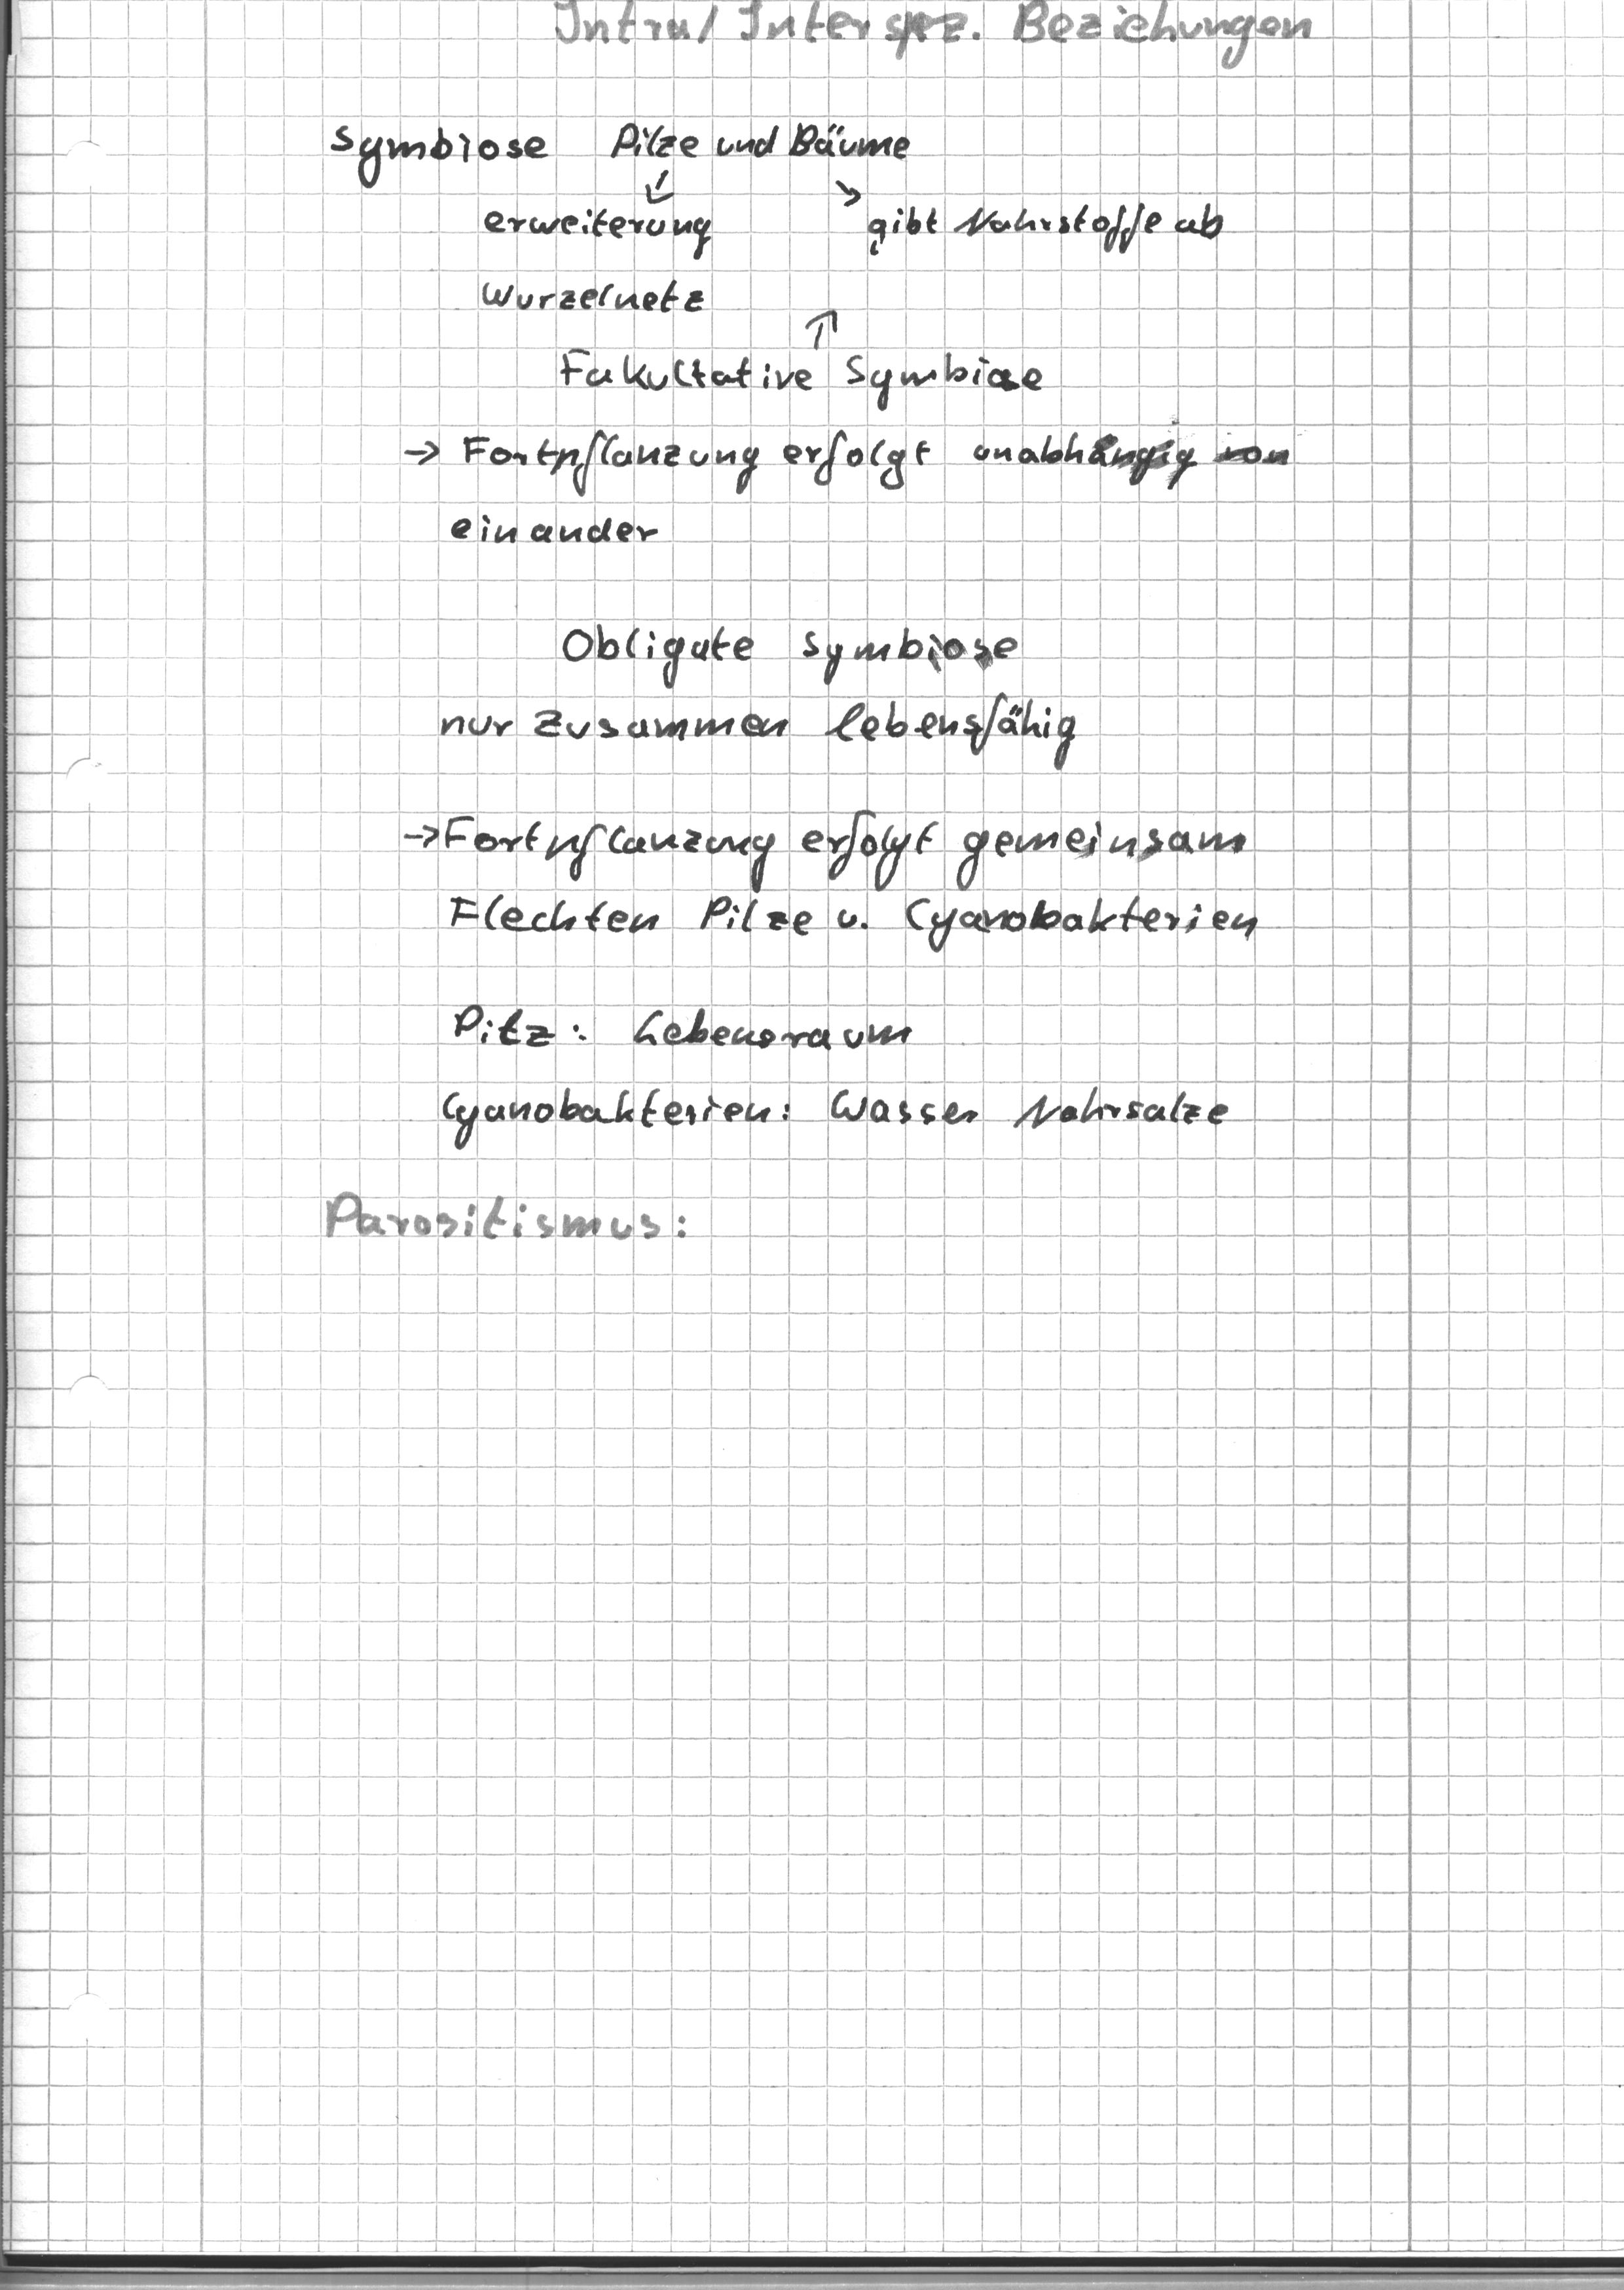 Intra/Interspez. Beziehungen
Symbiose Pilze und Bäume
erweiterung gibt Nährstoffe ab
Wurzelnetz
Fakultative Symbiose
→ Fortpflanzung erfolgt unabhängig von
einander
Obligate Symbiose
nur zusammen lebensfähig
→ Fortpflanzung erfolgt gemeinsam
Flechten Pilze u. Cyanobakterien
Pilz: Lebensraum
Cyanobakterien: Wasser Nährsalze
Parasitismus: